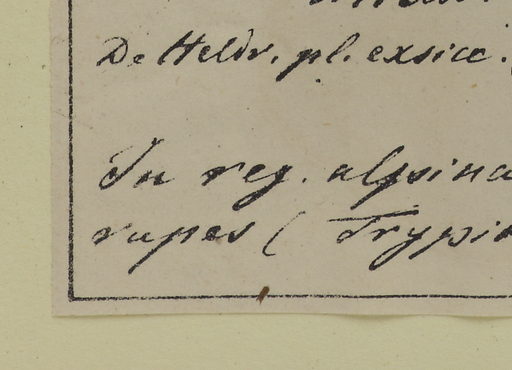 De Heldr. pl. exsicc.
In reg. alpina
rupes ( Trypi